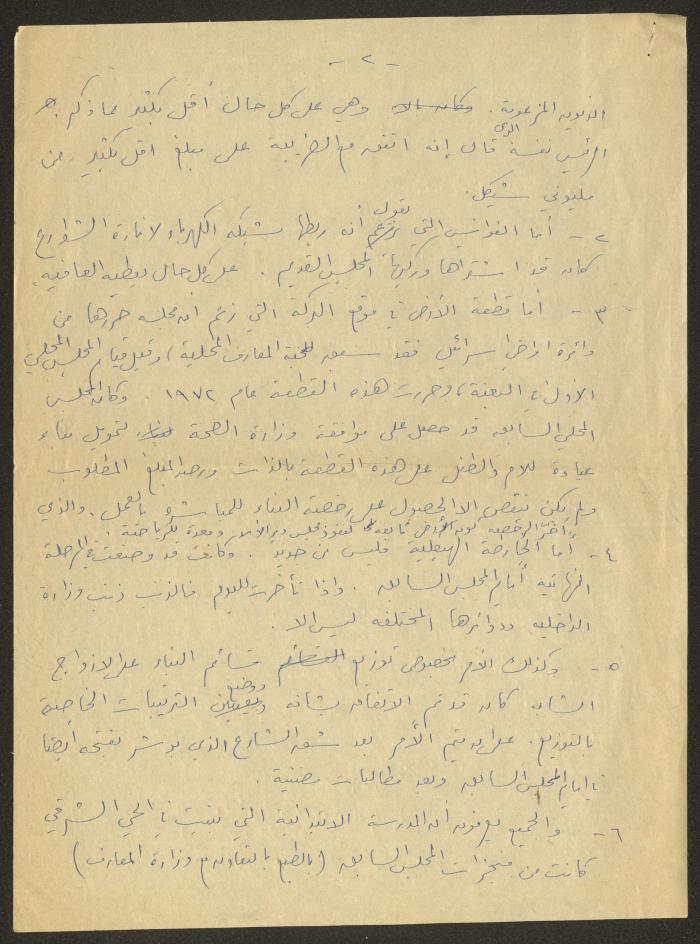 - ٢ -
الديون المزعومة. وهي على كل حال أقل بكثير مما ذكر
الرئيس نفسه الذي قال إنه اتفق مع الضريبة على مبلغ اقل بكثير من
مليوني شيكل.
٢ - أما الفوانيس التي يقول أنه ربطها بشبكة الكهرباء لانارة الشوارع
كان قد اشتراها وركبها المجلس القديم. على كل حال يعطيه العافية.
٣ - أما قطعة الأرض في موقع البركة التي زعم أن مجلسه حررها من
دائرة اراضي اسرائيل فقد سبق للجنة المعارف المحلية (وقبل قيام المجلس المحلي
الاول في البعنة) وحررت هذه القطعة عام ١٩٧٢. وكان المجلس
المحلي السابق قد حصل على موافقة وزارة الصحة لتمويل بناء
عيادة للام والطفل على هذه القطعة بالذات ورصد المبلغ المطلوب
ولم يكن ينقص الا الحصول على رخصة البناء للمباشرة بالعمل. والذي
أخّر الرخصة كون الأرض تابعة لنفوذ مجلس دير الأسد ومعدة لكراجات.
٤ - أما الخارطة الهيكلية فليس من جديد. وكانت قد وضعت في المرحلة
النهائية أيام المجلس السابق. واذا تأخرت لليوم فالذنب ذنب وزارة
الداخلية ودوائرها المختلفة ليس الا.
٥ - وكذلك الأمر بخصوص توزيع قسائم البناء على الازواج
الشابة كان قد تم الاتفاق بشأنه ووضع الترتيبات الخاصة
بالتوزيع. على ان يتم الأمر بعد شق الشارع الذي بوشر بفتحه ايضا
في ايام المجلس السابق وبعد مطالبات مضنية.
٦ - والجميع يعرفون أن المدرسة الابتدائية التي بنيت في الحي الشرقي
كانت من منجزات المجلس السابق (بالطبع بالتعاون مع وزارة المعارف)